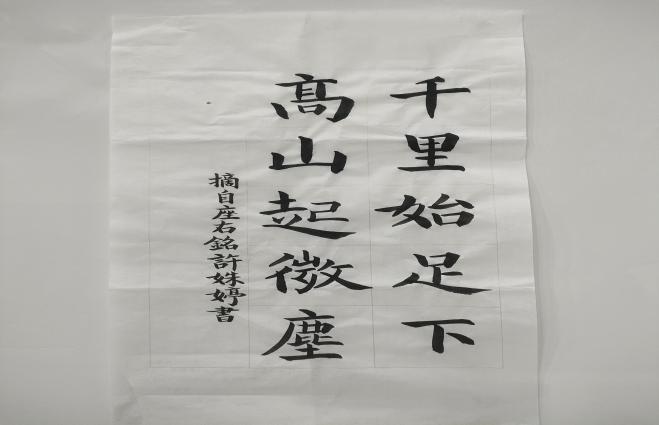 千里始足下
高山起微塵
摘自座右銘許姝婷書